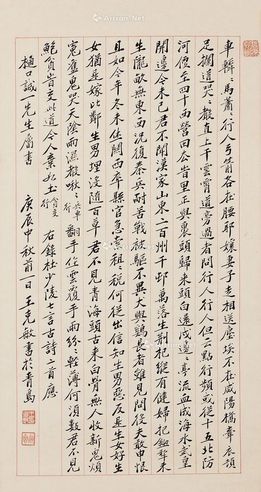 車轔轔馬蕭蕭行人弓箭各在腰耶孃妻子走相送塵埃不見咸陽橋牽衣頓
足攔道哭哭聲直上干雲霄道旁過者問行人行人但云點行頻或從十五北防
河便至四十西營田去時里正與裹頭歸來頭白還戍邊邊亭流血成海水武皇
開邊意未已君不聞漢家山東二百州千邨萬落生荊杞縱有健婦把鋤犁禾
生隴畝無東西況復秦兵耐苦戰被驅不異犬與雞長者雖見問役夫敢申恨
且如今年冬未休關西卒縣官急索租租稅何從出信知生男惡反是生女好生
女猶是嫁比鄰生男埋沒隨百草君不見青海頭古來白骨無人收新鬼煩
冤舊鬼哭天陰雨濕聲啾啾兵車行翻手作雲覆手雨紛紛輕薄何須數君不見
鮑管貧交行此道今人棄如土貧交行 右錄杜少陵七言古詩二首應
樋口誠一先生屬書 庚辰中秋前一日王克敏書於青島